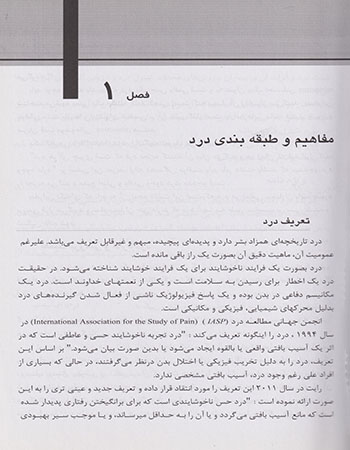 فصل ۱
مفاهیم و طبقه بندی درد
تعریف درد
درد تاریخچه‌ای همزاد بشر دارد و پدیده‌ای پیچیده، مبهم و غیرقابل تعریف می‌باشد. علیرغم
عمومیت آن، ماهیت دقیق آن بصورت یک راز باقی مانده است.
درد بصورت یک فرآیند ناخوشایند برای یک فرایند خوشایند شناخته می‌شود. در حقیقت
درد یک اخطار برای رسیدن به سلامت است و یکی از نعمتهای خداوند است. درد یک
مکانیسم دفاعی در بدن بوده و یک پاسخ فیزیولوژیک ناشی از فعال شدن گیرنده‌های درد
بدلیل محرکهای شیمیایی، فیزیکی و مکانیکی است.
انجمن جهانی مطالعه درد (IASP) (International Association for the Study of Pain) در
سال ۱۹۹۴، درد را اینگونه تعریف می‌کند: "درد تجربه ناخوشایند حسی و عاطفی است که در
اثر یک آسیب بافتی واقعی یا بالقوه ایجاد می‌شود یا بدین صورت بیان می‌شود." بر اساس این
تعریف، درد را به دلیل تخریب فیزیکی یا اختلال بدن درنظر می‌گرفتند، در حالی که بسیاری از
افراد علی رغم وجود درد، آسیب بافتی مشخصی ندارد.
رایت در سال ۲۰۱۱ این تعریف را مورد انتقاد قرار داده و تعریف جدید و عینی تری را به این
صورت ارائه نموده است: "درد حس ناخوشایندی است که برای برانگیختن رفتاری پدیدار شده
است که مانع آسیب بافتی می‌گردد و یا آن را به حداقل میرساند، و یا موجب سیر بهبودی